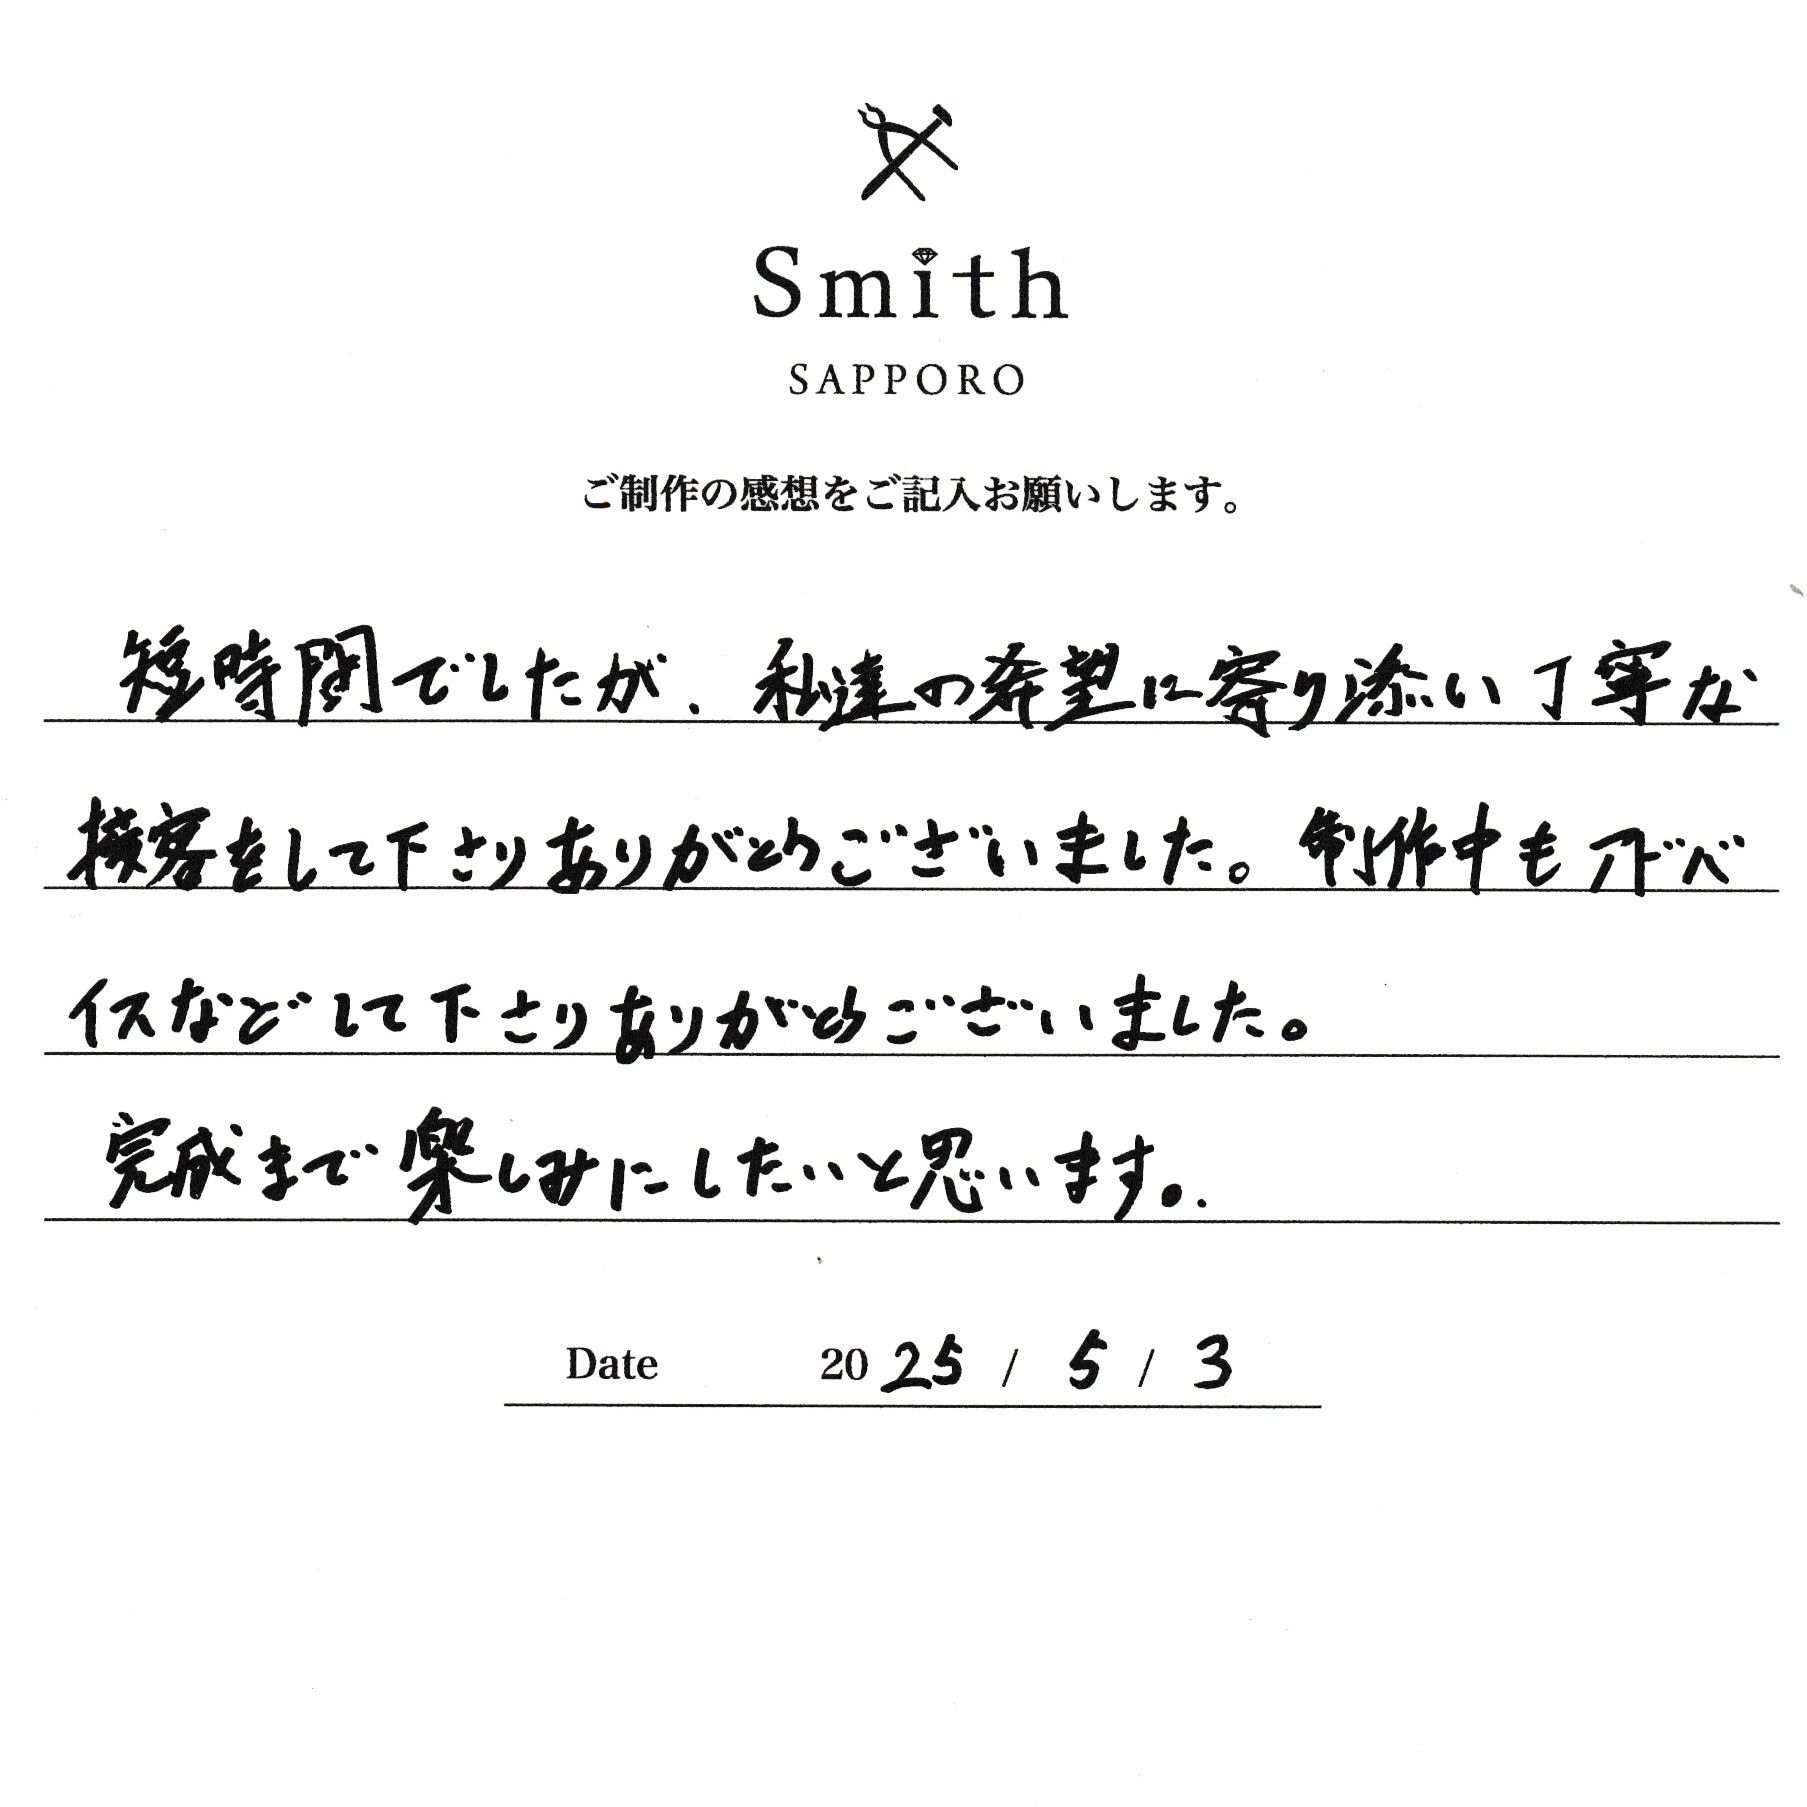 Smith
SAPPORO
ご制作の感想をご記入お願いします。
短時間でしたが、私達の希望に寄り添い丁寧な
接客をして下さりありがとうございました。制作中もアドバ
イスなどして下さりありがとうございました。
完成まで楽しみにしたいと思います。
Date 2025 / 5 / 3